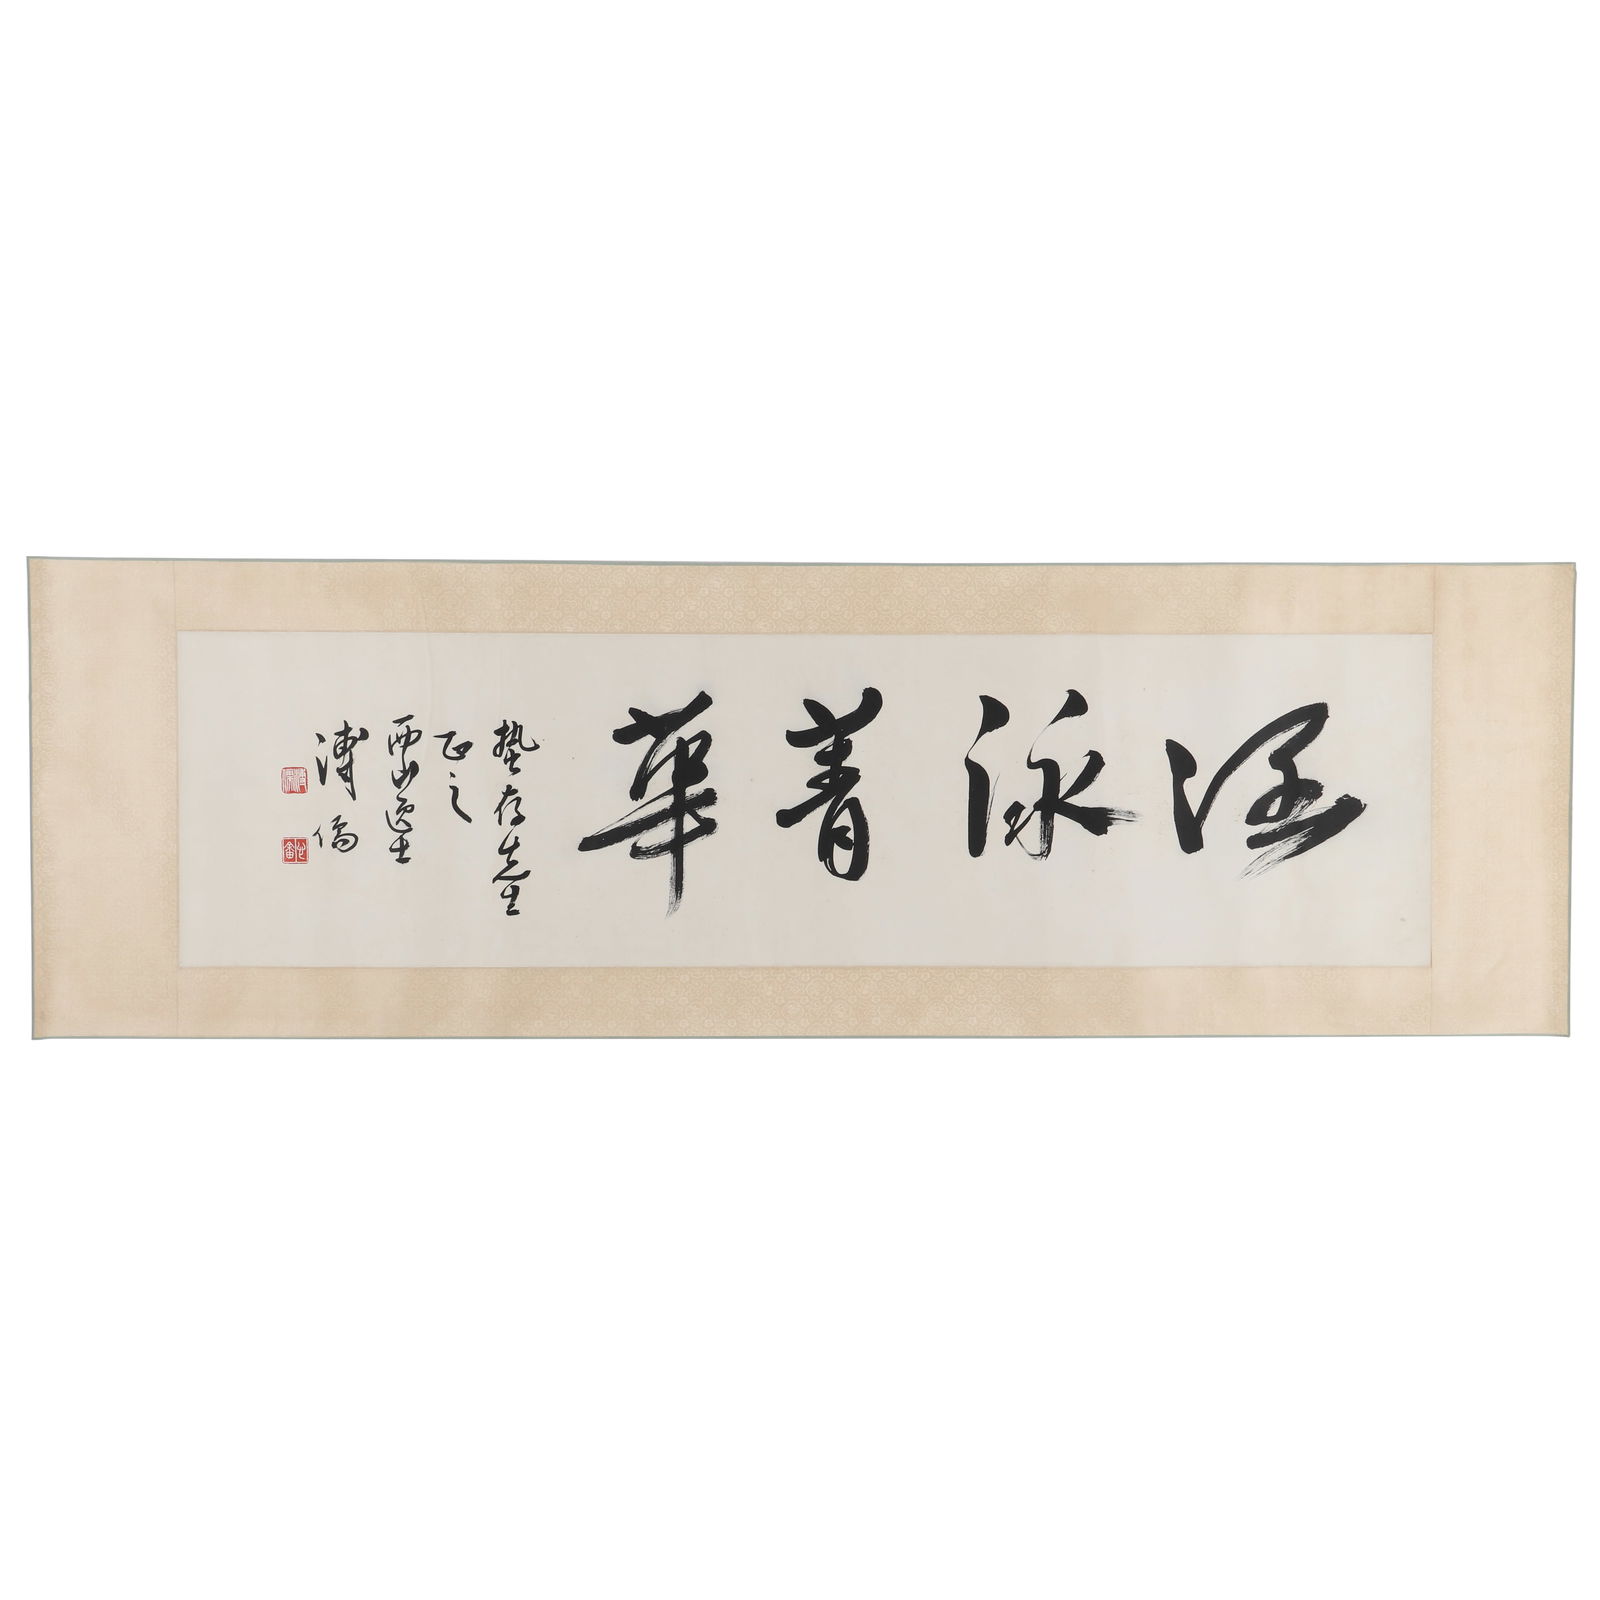 涵泳菁華
蟄存先生
正之
西山逸士
溥儒